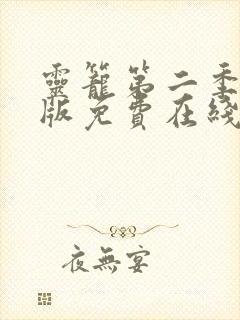 靈籠第二季
版免費在綫
夜無宴